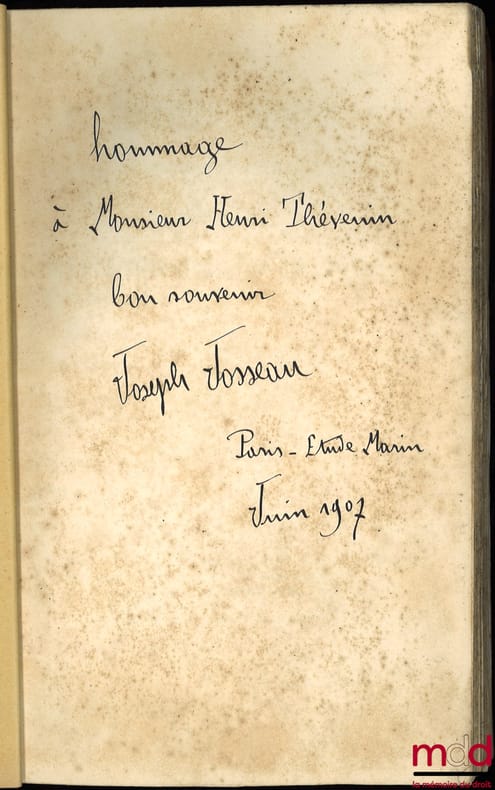 hommage
à Monsieur Henri Thévenin
bon souvenir
Joseph Josseau
Paris - Etude Marin
Juin 1907
mdd
la mémoire du droit